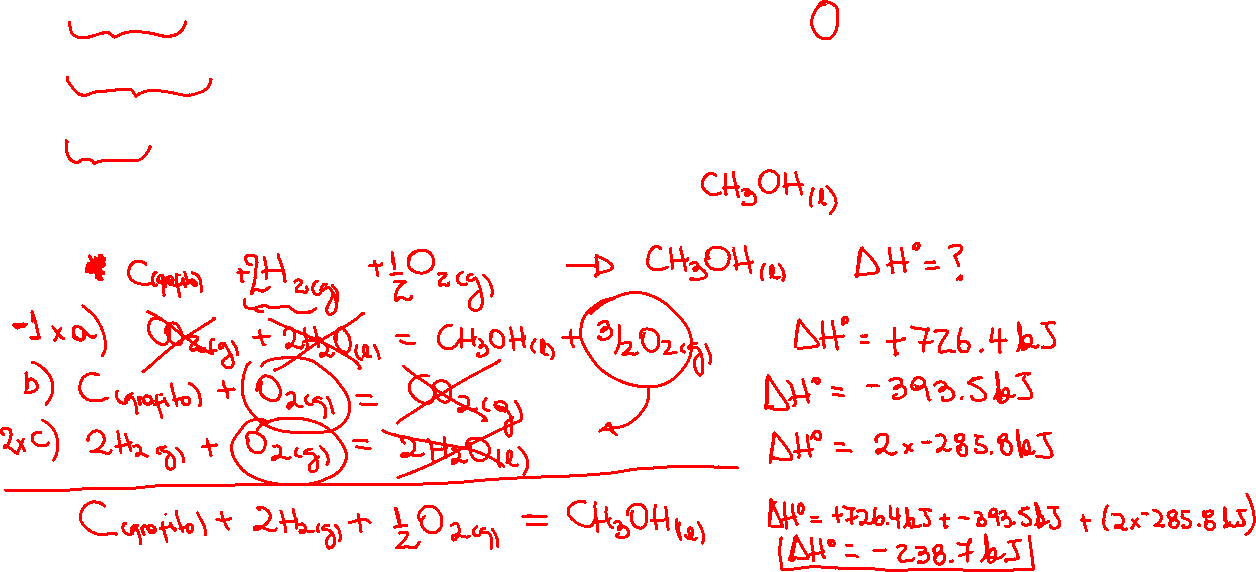 O
CH₃OH(l)
* C(grafito) + 2H₂(g) + ½O₂(g) → CH₃OH(l) ΔH° = ?
-1 x a) CO₂(g) + 2H₂O(l) = CH₃OH(l) + 3/2O₂(g) ΔH° = +726.4 kJ
b) C(grafito) + O₂(g) = CO₂(g) ΔH° = -393.5 kJ
2xC) 2H₂(g) + O₂(g) = 2H₂O(l) ΔH° = 2x-285.8kJ
C(grafito) + 2H₂(g) + ½O₂(g) = CH₃OH(l) ΔH° = +726.4kJ + -393.5kJ + (2x-285.8kJ)
ΔH° = -238.7kJ